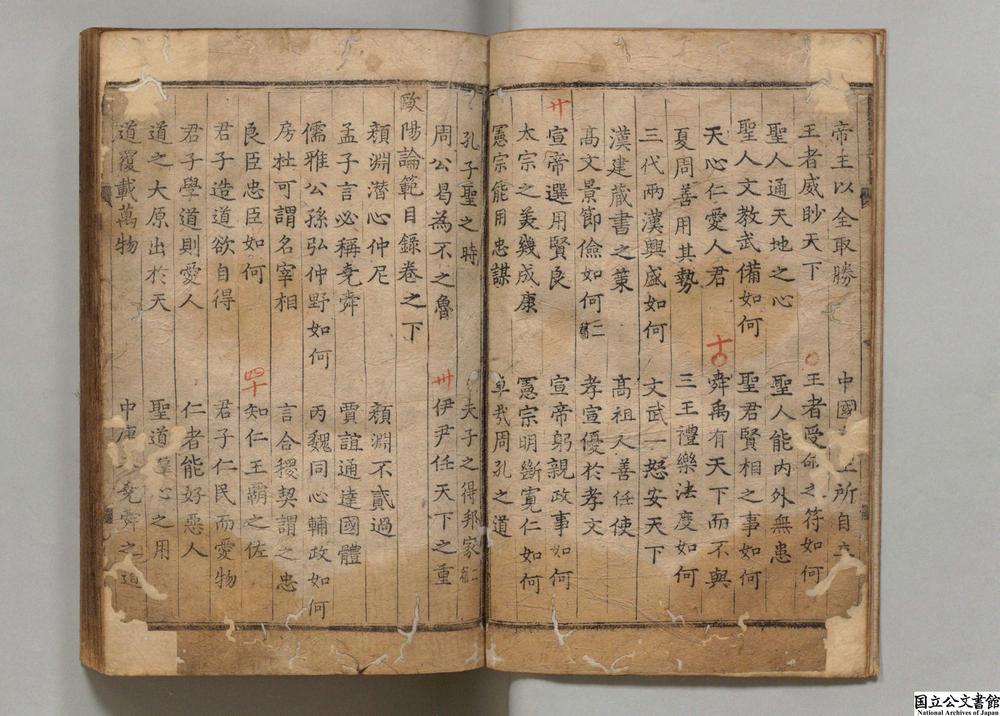 帝王以全取勝 中國 所自立
王者威眇天下 王者受命之符如何
聖人通天地之心 聖人能内外無患
聖人文教武備如何 聖君賢相之事如何
天心仁愛人君 十 舜禹有天下而不與
夏周善用其勢 三王禮樂法度如何
三代兩漢興盛如何 文武一怒安天下
漢建藏書之策 高祖人善任使
高文景節儉如何 二 孝宣優於孝文
卄 宣帝選用賢良 宣帝躬親政事如何
太宗之美幾成康 憲宗明斷寬仁如何
憲宗能用忠謀 卓哉周孔之道
孔子聖之時 夫子之得邦家 二
周公曷為不之魯 卅 伊尹任天下之重
歐陽論範目錄卷之下
顏淵潛心仲尼 顏淵不貳過
孟子言必稱堯舜 賈誼通達國體
儒雅公孫弘仲野如何 丙魏同心輔政如何
房杜可謂名宰相 言合稷契謂之忠
良臣忠臣如何 四十 知仁王霸之佐
君子造道欲自得 君子仁民而愛物
君子學道則愛人 仁者能好惡人
道之大原出於天 聖道 心之用
道覆載萬物 中庸 堯舜之道
国立公文書館
National Archives of Japan